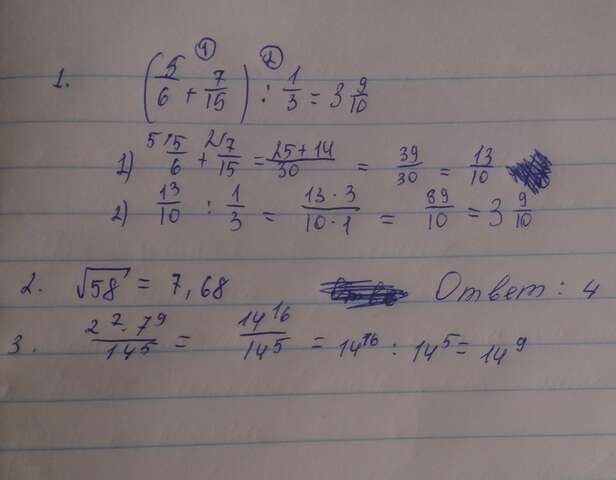 ① ②
1. (5/6 + 7/15) : 1/3 = 3 9/10
1) 5\5/6 + 2\7/15 = 25+14/30 = 39/30 = 13/10
2) 13/10 : 1/3 = 13·3/10·1 = 39/10 = 3 9/10
2. √58 = 7,68 Ответ: 4
3. 2⁷·7⁹/14⁵ = 14¹⁶/14⁵ = 14¹⁶ : 14⁵ = 14⁹